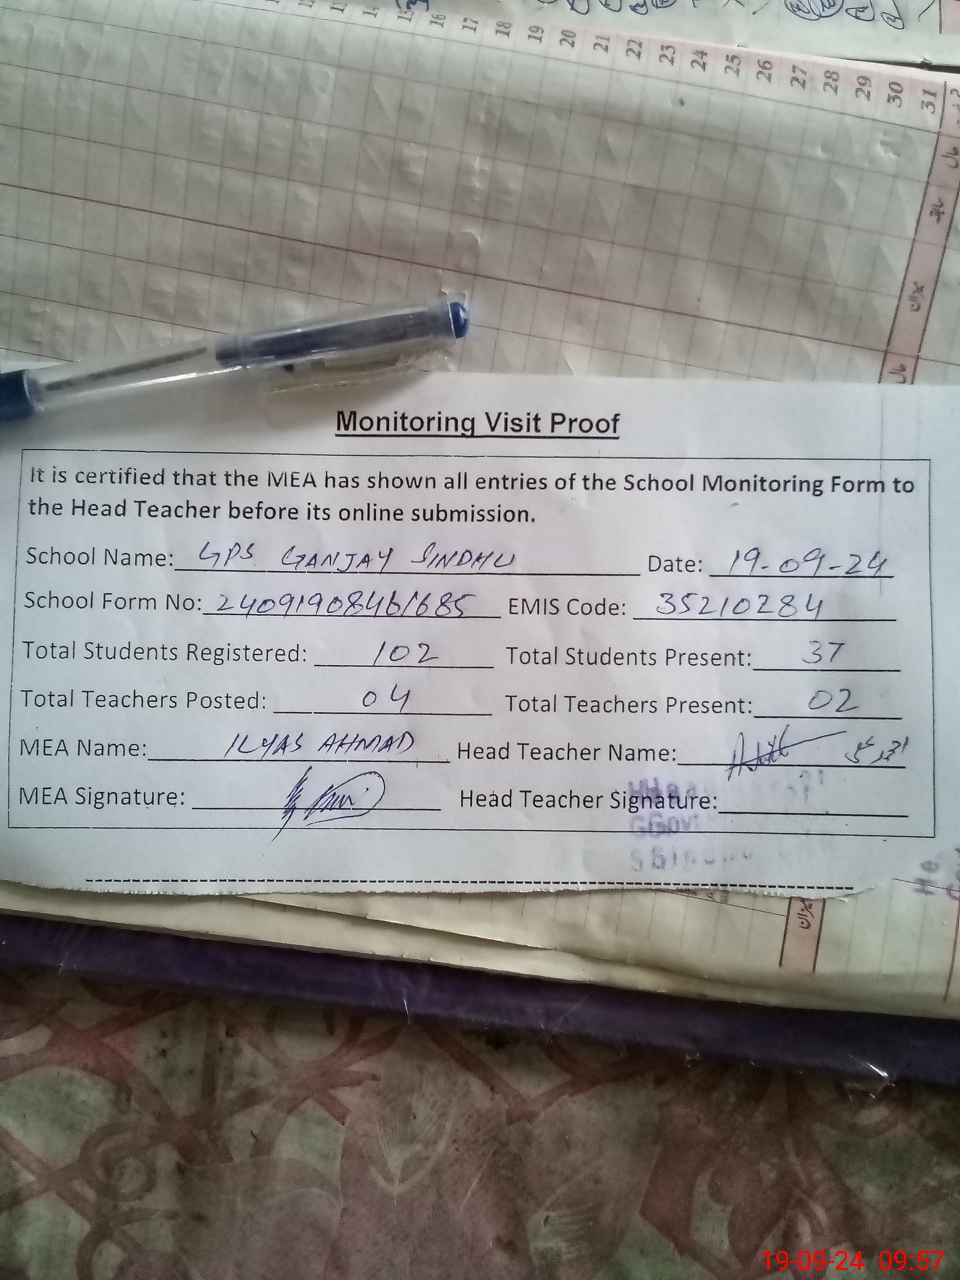 16 17 18 19 20 21 22 23 24 25 26 27 28 29 30 31
Monitoring Visit Proof
It is certified that the MEA has shown all entries of the School Monitoring Form to
the Head Teacher before its online submission.
School Name: GPS GANJAY SINDHU Date: 19-09-24
School Form No: 24091908461685 EMIS Code: 35210284
Total Students Registered: 102 Total Students Present: 37
Total Teachers Posted: 04 Total Teachers Present: 02
MEA Name: ILYAS AHMAD Head Teacher Name:
MEA Signature: Head Teacher Signature:
میزان
19-09-24 09:57